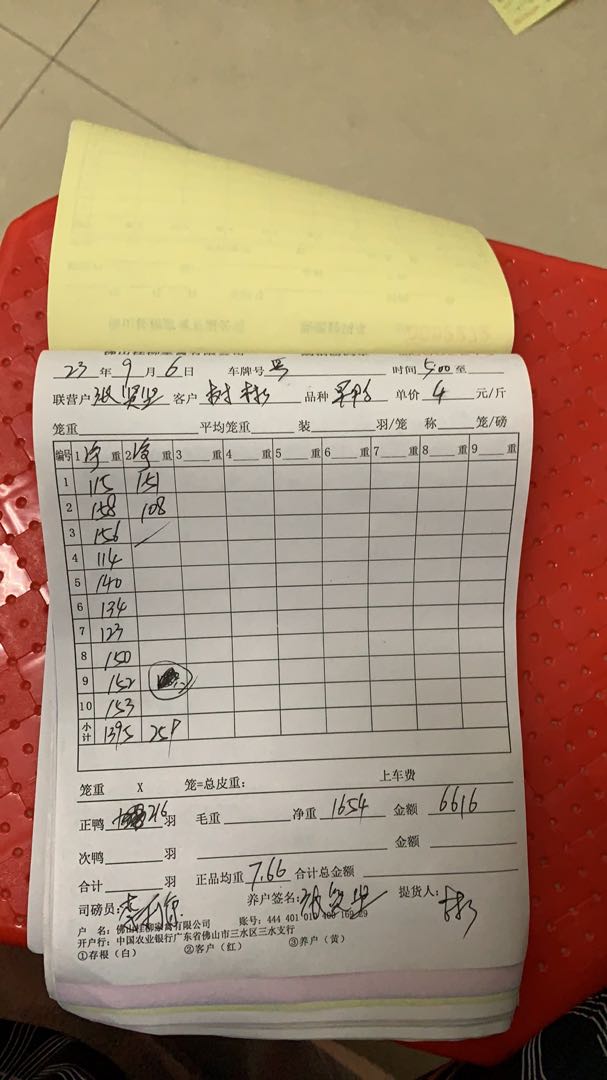 23 年 9 月 6 日 车牌号 时间 500 至
联营户 张贤坚 客户 树彬 品种 单价 4 元/斤
笼重 平均笼重 装 羽/笼 称 笼/磅
编号 1 净 重 2 净 重 3 重 4 重 5 重 6 重 7 重 8 重 9 重
1 115 151
2 158 108
3 156
4 114
5 140
6 134
7 123
8 150
9 152
10 153
小计 1395 259
笼重 X 笼=总皮重: 上车费
正鸭 216 羽 毛重 净重 1654 金额 6616
次鸭 羽 金额
合计 羽 正品均重 7.66 合计总金额
司磅员: 养户签名: 张贤坚 提货人:
户 名: 佛山桂柳家禽有限公司 账号: 444 401 010 400 169 89
开户行: 中国农业银行广东省佛山市三水区三水支行
①存根(白) ②客户(红) ③养户(黄)